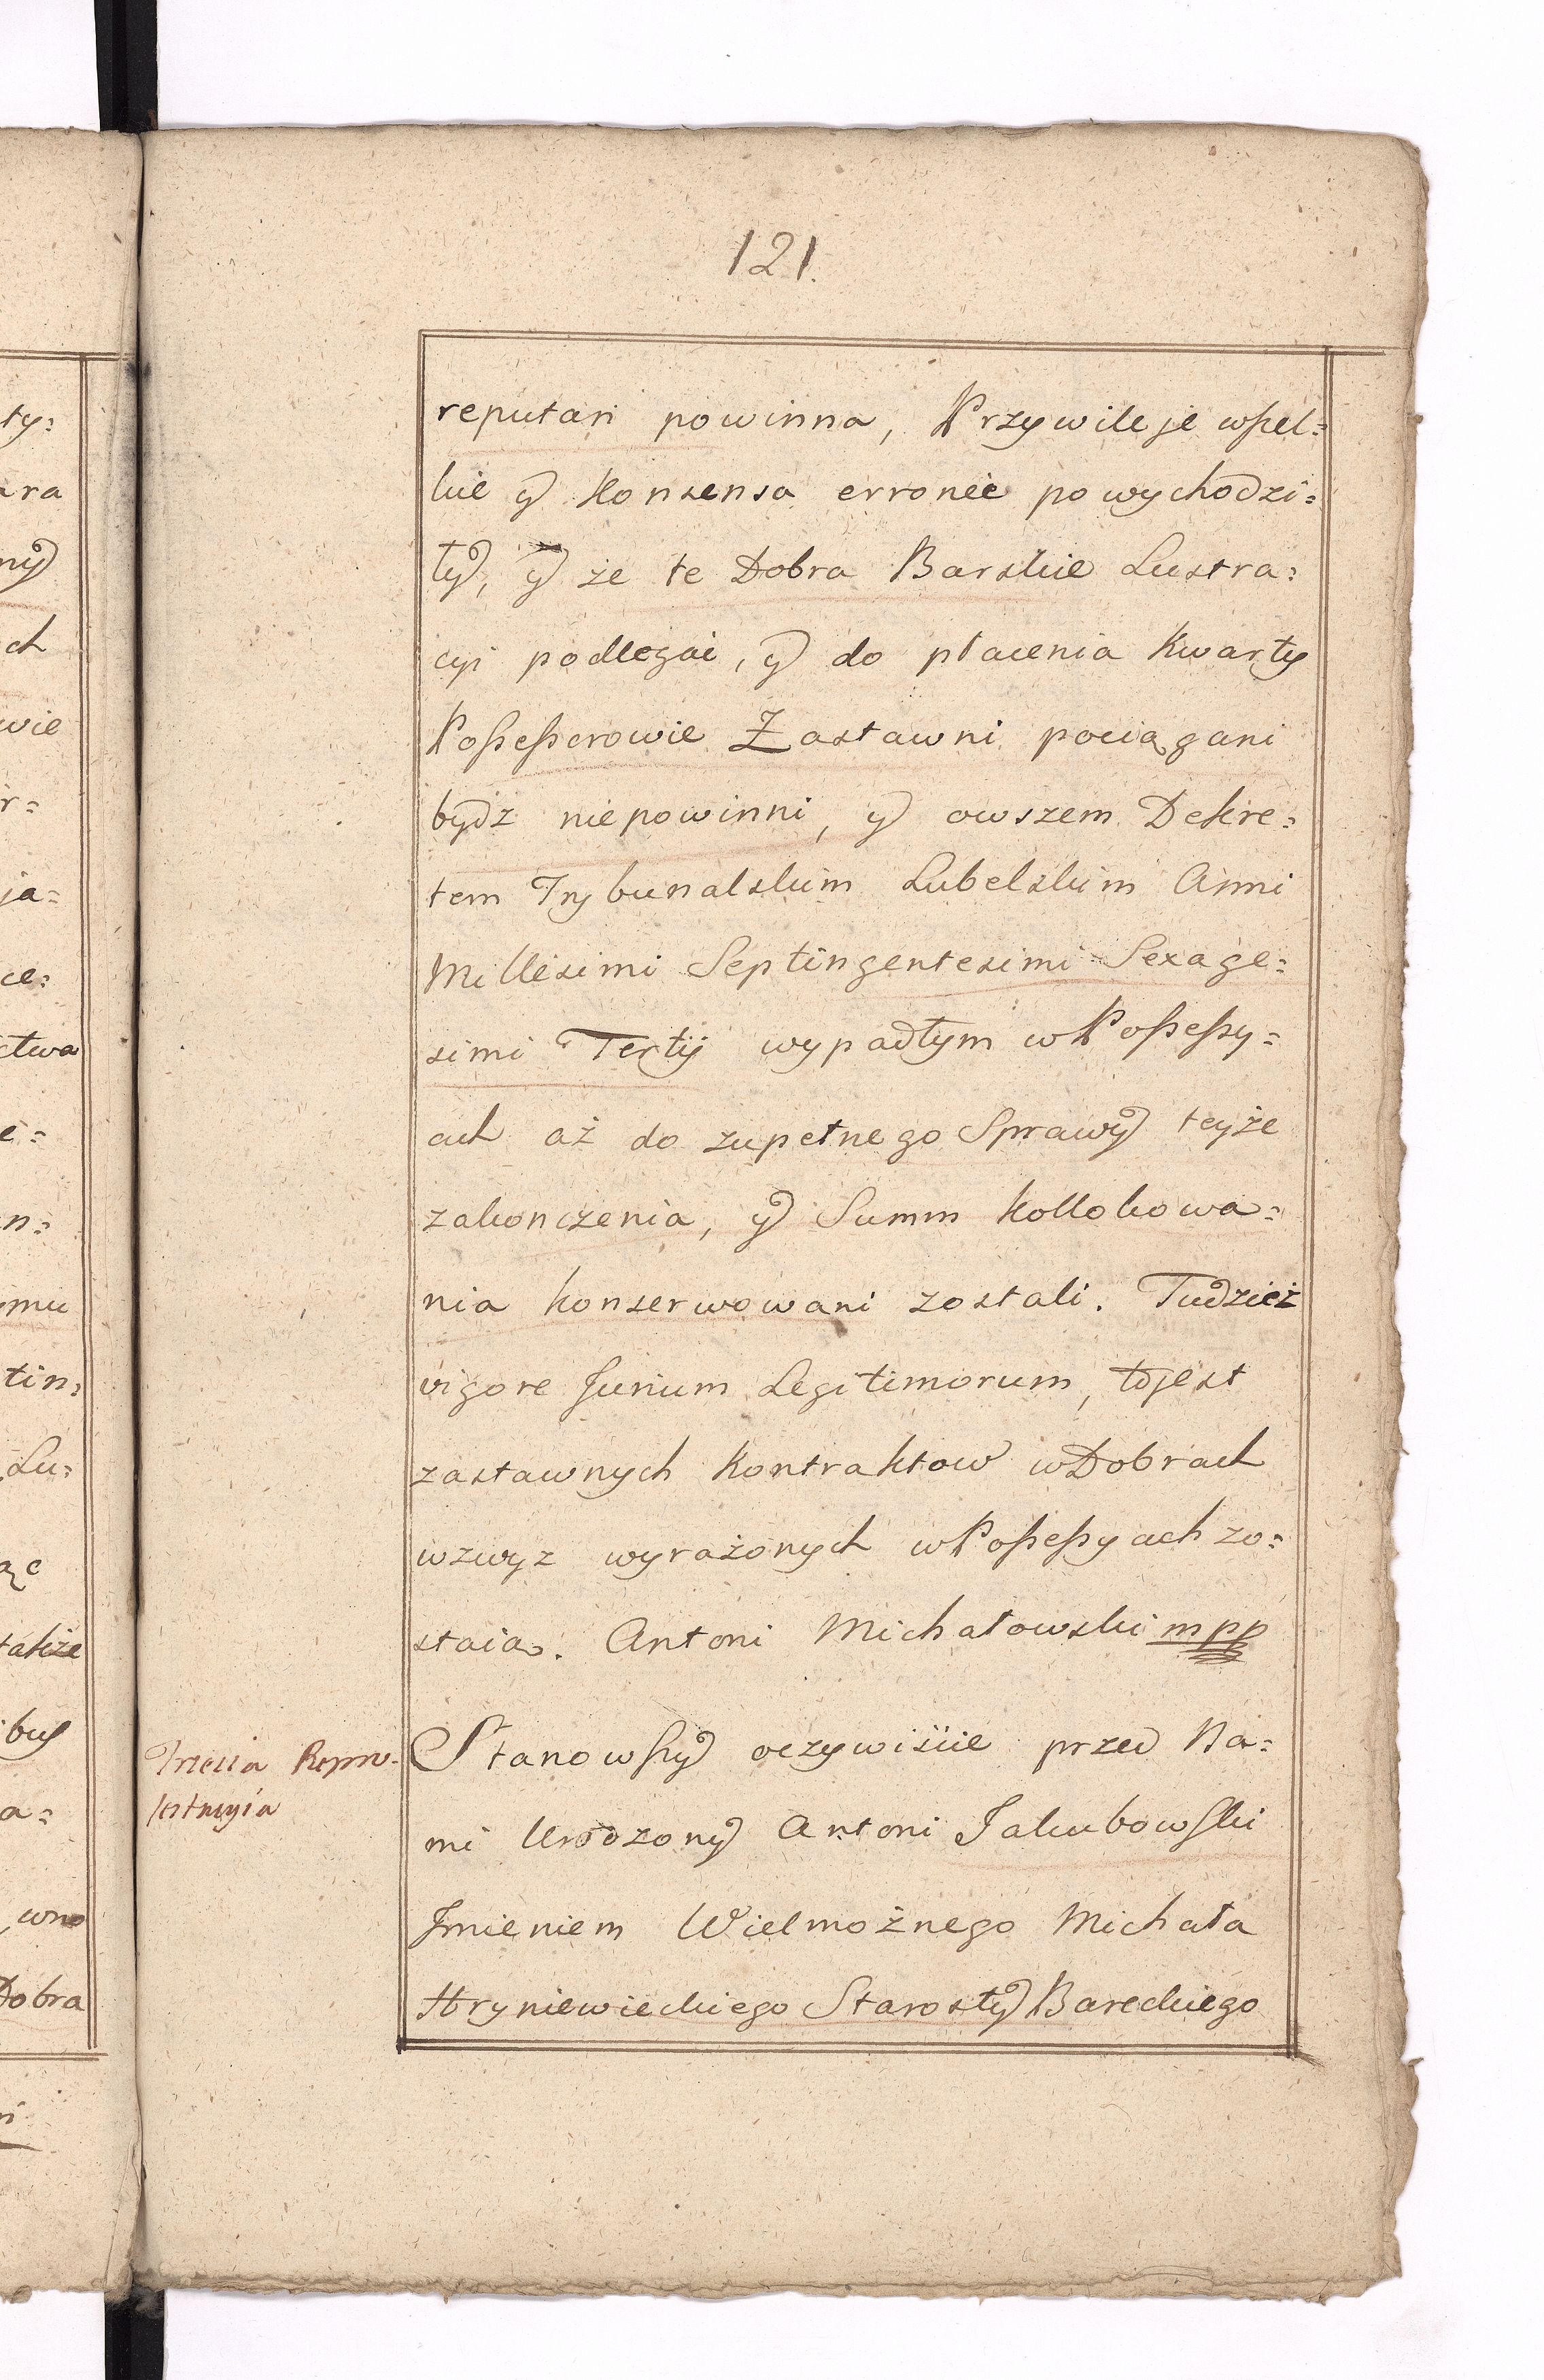 121.
reputari powinna, Przywileje wszel=
kie y Konsensa erronee powychodzi=
ły, y że te Dobra Barskie Lustra=
cyi podlegać, y do płacenia Kwarty
Possessorowie Zastawni pociągani
bydz niepowinni, y owszem Dekre=
tem Trybunalskim Lubelskim Anni
Millesimi Septingentesimi Sexage=
simi Tertij wypadłym w Possessy=
ach aż do zupełnego Sprawy teyże
zakonczenia, y Summ kollokowa=
nia konserwowani zostali. Tudzież
vigore Jurium Legitimorum, to jest
zastawnych Kontraktow w Dobrach
wzwyz wyrażonych w Possessyach zo=
staią. Antoni Michałowski mpp
Trzecia Repre-
sentacyia
Stanowszy oczywiście przed Na=
mi Urodzony Antoni Jakubowski
Jmieniem Wielmożnego Michała
Hryniewieckiego Starosty Bareckiego
ty=
ara
ny
ch
wie
r=
ja=
ce=
ctwa
e=
n=
omu
tin=
Lu=
ąc
także
bus
a=
wno
Dobra